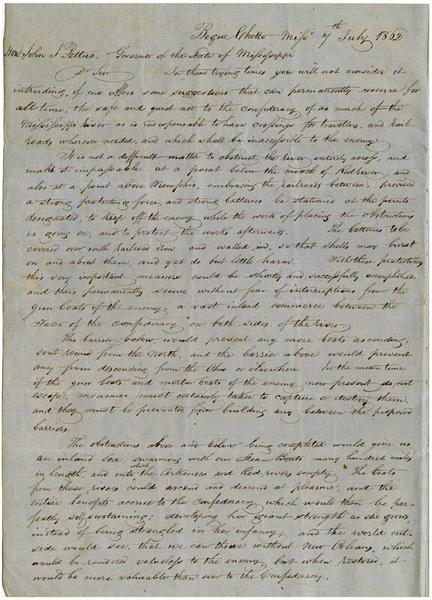 Bogue Chitto Missi 7th July 1862
Hon John J Pettus, Governor of the State of Mississippi
Dr Sir In these trying times you will not consider it
intruding, if one offers some suggestions that can permanently secure for
all time, the safe and quiet use to the confederacy of as much of the
Mississippi River as is indispensable to have crossings for travellers, and Rail-
roads wherever needed, and which shall be inaccessible to the enemy
It is not a difficult matter to obstruct the River entirely across, and
make it impassable at a point below the mouth of Red river, and
also at a point above Memphis, embracing the railroads between, provided
a strong protecting force, and strong batteries be stationed at the points
designated, to keep off the enemy while the work of placing the obstructions
is going on, and to protect the works afterwards. The batteries to be
covered over with railroad iron and walled in, so that shells may burst
on and about them, and yet do but little harm. With these protections
this very important measure could be shortly and successfully accomplished,
and thus permanently secure without fear of interruption from the
gun boats of the enemy, a vast inland commerce between the
States of the Confederacy on both sides of the river
The barrier below, would prevent any more boats ascending,
sent round from the North, and the barrier above would prevent
any from descending from the Ohio or elsewhere. In the mean time
if the gun boats and mortar boats of the enemy now present do not
escape, measures must certainly taken to capture or destroy them,
and they must be prevented from building any between the proposed
barriers.
The obstructions above and below being completed would give us
an inland sea, swarming with our Steam Boats many hundred miles
in length, and into which the Arkansas and Red rivers empty. The boats
from those rivers could ascend and descend at pleasure, and the
entire benefits accrue to the Confederacy, which would then be per-
fectly self sustaining; developing her giant strength as she grows,
instead of being strangled in her infancy; and the world out-
side would see, that we can thrive without New Orleans, which
would be rendered valueless to the enemy, but when restored, it
would be more valuable than ever to the Confederacy.